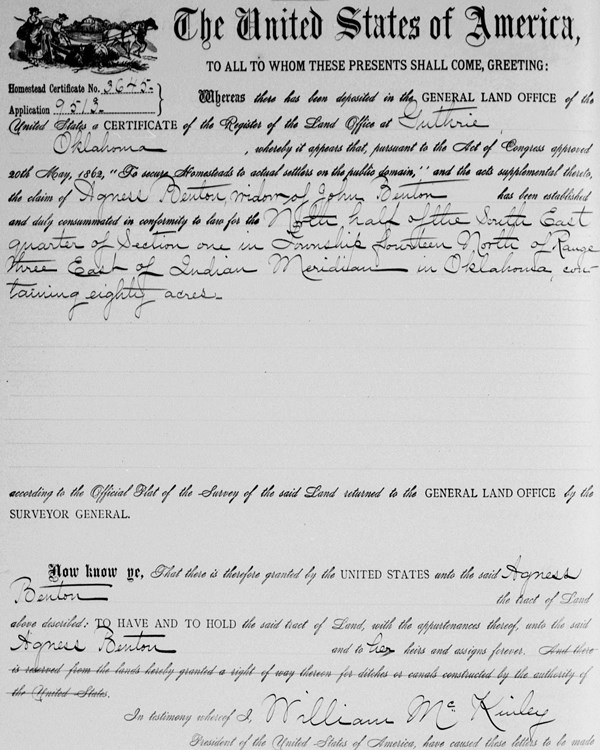 The United States of America,
TO ALL TO WHOM THESE PRESENTS SHALL COME, GREETING:
Homestead Certificate No. 3645.
Application 9513.
Whereas there has been deposited in the GENERAL LAND OFFICE of the
United States a CERTIFICATE of the Register of the Land Office at Guthrie,
Oklahoma, whereby it appears that, pursuant to the Act of Congress approved
20th May, 1862, "To secure Homesteads to actual settlers on the public domain," and the acts supplemental thereto,
the claim of Agness Benton, widow of John Benton has been established
and duly consummated in conformity to law for the North half of the South East
quarter of Section one in Township fourteen North of Range
three East of Indian Meridian in Oklahoma, con-
taining eighty acres.
according to the Official Plat of the Survey of the said Land returned to the GENERAL LAND OFFICE by the
SURVEYOR GENERAL.
Now know ye, That there is therefore granted by the UNITED STATES unto the said Agness
Benton the tract of Land
above described: TO HAVE AND TO HOLD the said tract of Land, with the appurtenances thereof, unto the said
Agness Benton and to her heirs and assigns forever. And there
is reserved from the lands hereby granted a right of way thereon for ditches or canals constructed by the authority of
the United States.
In testimony whereof I, William McKinley
President of the United States of America, have caused these letters to be made